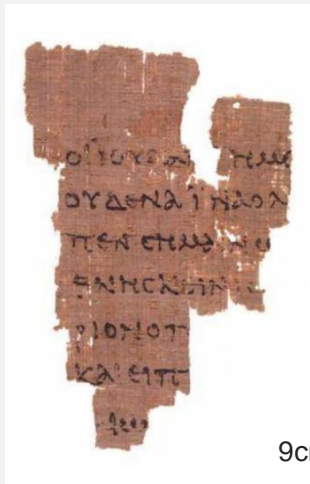 ΟΙ ΙΟΥΔΑΙ ΗΜΕ
ΟΥΔΕΝΑ ΙΝΑ Ο Λ
ΠΕΝ CΗΜΑΙΝΩ
ΘΝΗCΚΕΙΝ
ΡΙΟΝ Ο Π
ΚΑΙ ΕΙΠ
9c